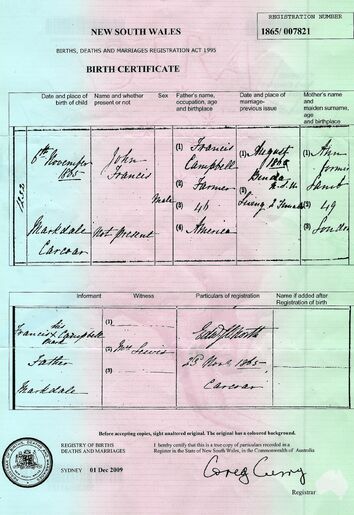 REGISTRATION NUMBER
NEW SOUTH WALES
1865/ 007821
BIRTHS, DEATHS AND MARRIAGES REGISTRATION ACT 1995
BIRTH CERTIFICATE
Date and place of birth of child
Name and whether present or not
Sex
Father's name, occupation, age and birthplace
Date and place of marriage- previous issue
Mother's name and maiden surname, age and birthplace
6th November 1865
Markdale
Carcoar
John Francis
Not present
Male
(1) Francis Campbell
(2) Farmer
(3) 46
(4) America
(1) August
(2)
N.S.W
(3) Living 2 Females
(1) Ann
(2)
(3) 49
(4) London
Informant
Witness
Particulars of registration
Name if added after Registration of birth
Francis his x mark Campbell
Father
Markdale
(1)
(2) Mrs Lewis
(3)
1865
Carcoar
Before accepting copies, sight unaltered original. The original has a coloured background.
REGISTRY OF BIRTHS DEATHS AND MARRIAGES
SYDNEY 01 Dec 2009
I hereby certify that this is a true copy of particulars recorded in a
Register in the State of New South Wales, in the Commonwealth of Australia
Greg Curry
Registrar